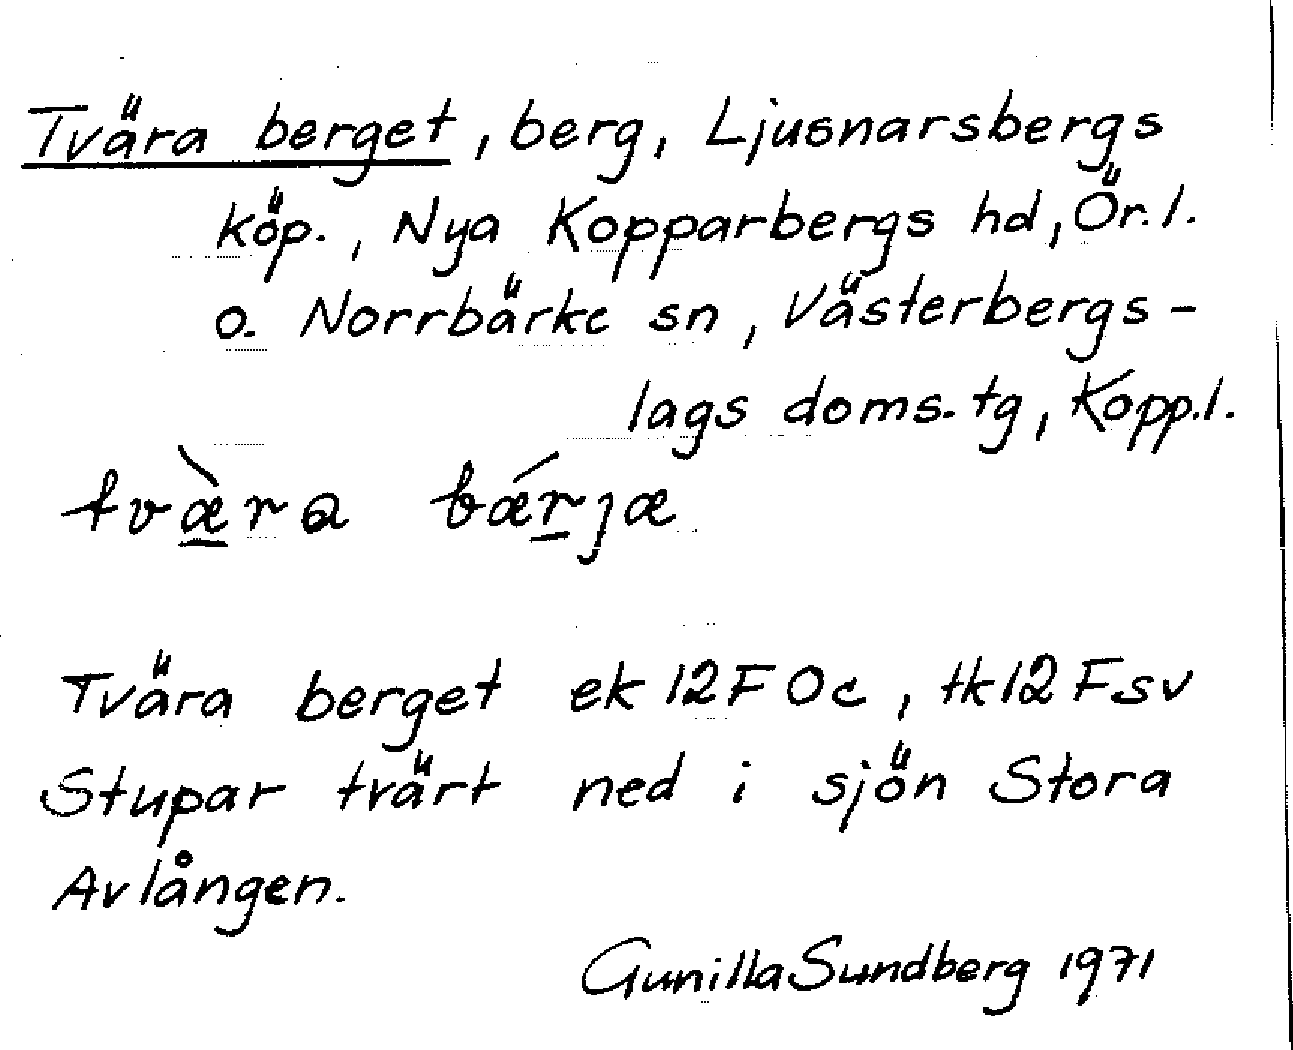 Tvära berget, berg, Ljusnarsbergs
köp., Nya Kopparbergs hd, Ör.l.
o. Norrbärke sn, Västerbergs-
lags doms.tg, Kopp.l.
tvæ̀ra bǽrjæ
Tvära berget ek 12F 0c, tk 12 Fsv
Stupar tvärt ned i sjön Stora
Avlången.
Gunilla Sundberg 1971